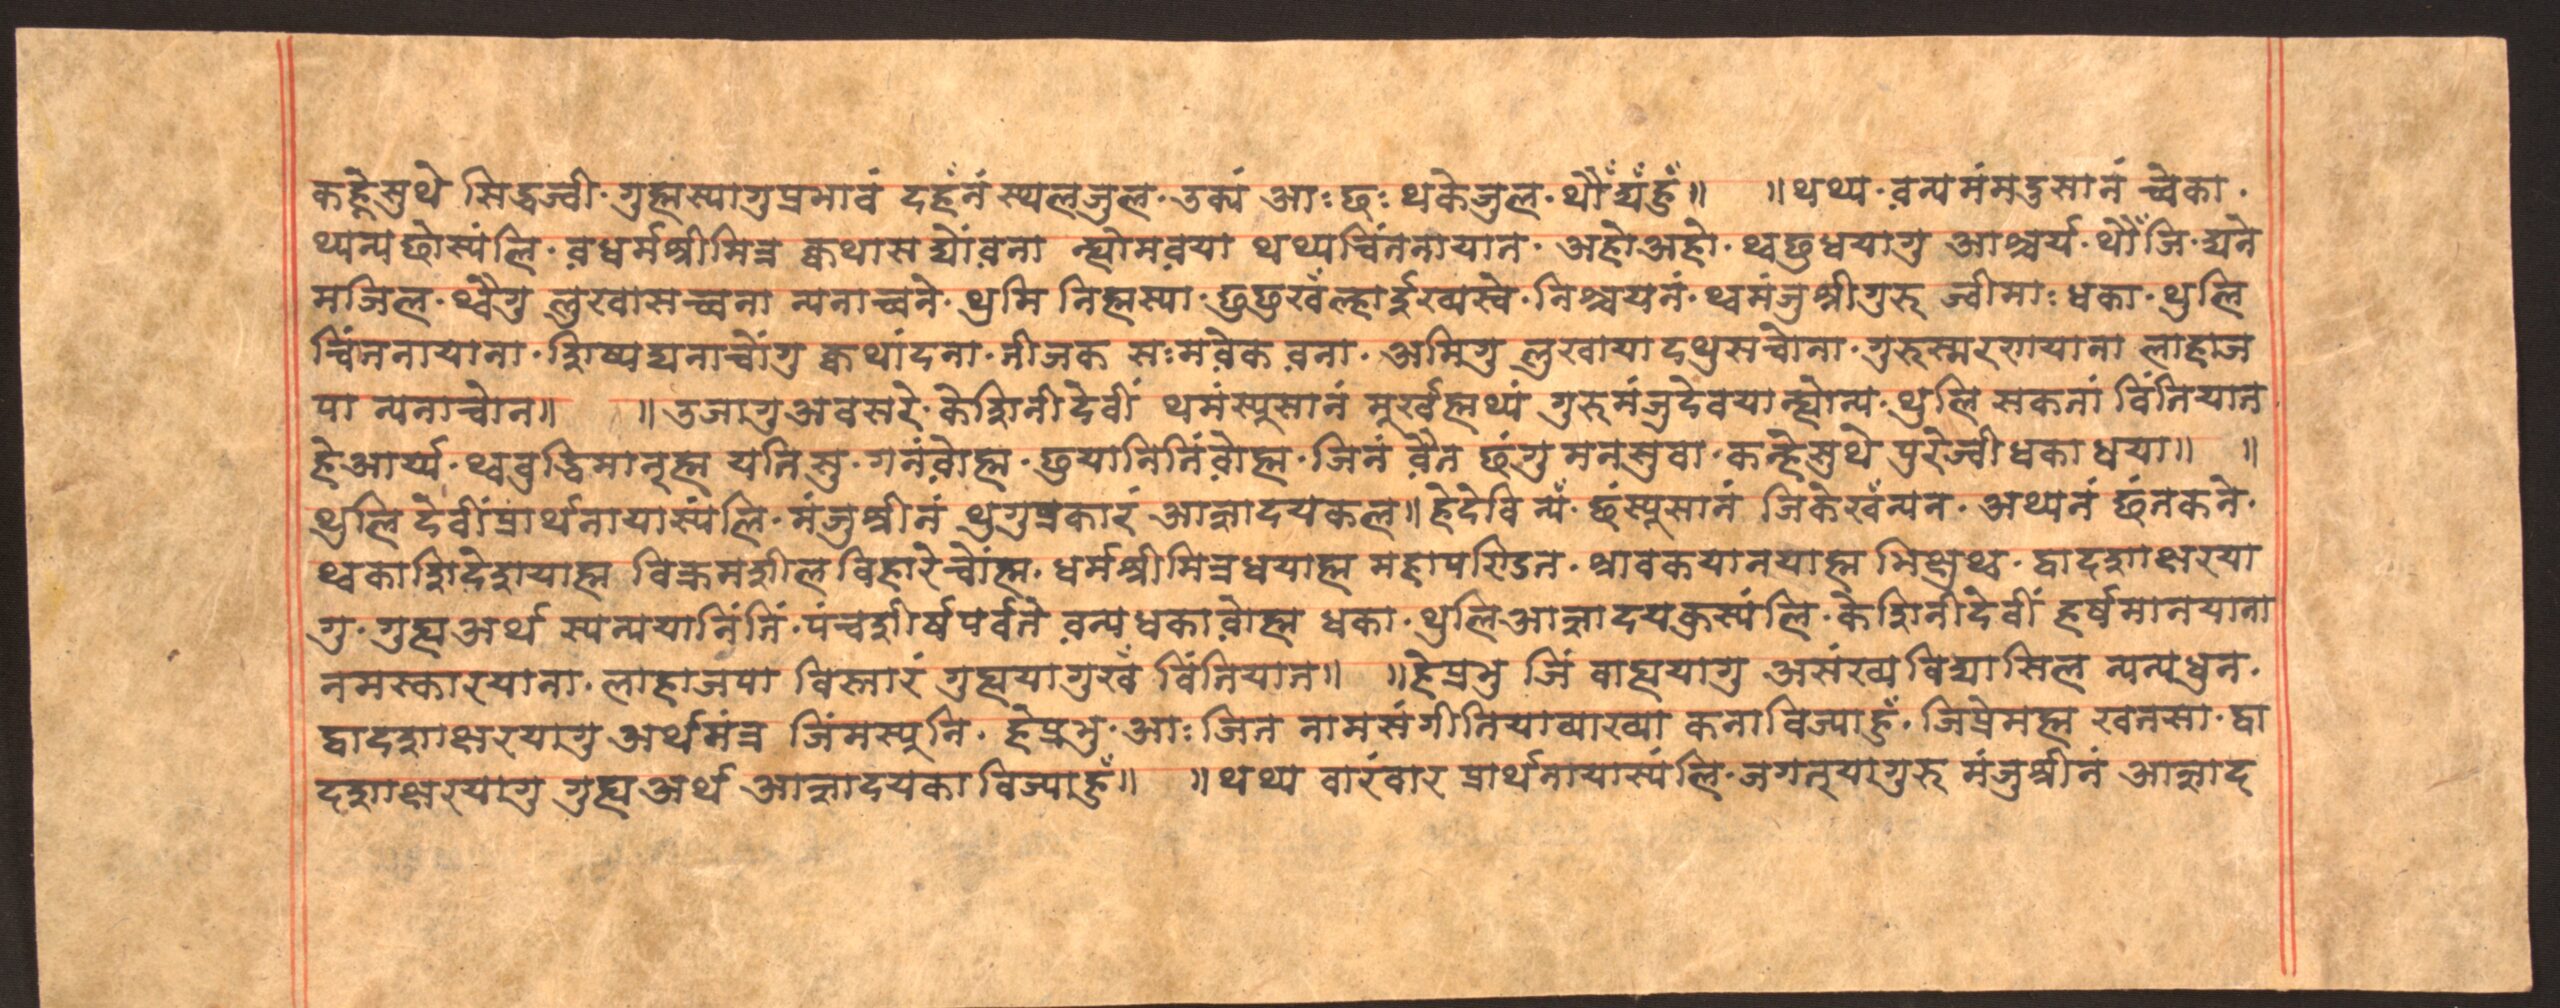 कह्नेसुथे सिद्धज्वी · गुह्मस्यागुप्रभावं दहँनं स्यलजुल · उक्यं आः छः थकेजुल · थौँद्यँहुँ॥ ॥थथ्य · व़न्यमंमदुसानं च्वेका ·
थ्यन्यछोस्यंलि · व़धर्मश्रीमित्र क्वथासद्योंव़ना न्ह्योमव़या थथ्यचिंतनायात · अहोअहो · थ्वछुधयागु आश्चर्य · थौँजि · द्यने
मजिल · थ्वैगु लुखासच्वना न्यनाच्वने · थुमि निह्मस्या · छुछुखँल्हाईखव्यस्वे · निश्चयनं · थ्वमंजुश्रीगुरु ज्वीमाः धका · थुलि
चिंतनायाना · शिष्यद्यनाचोंगु क्वथांदना · नीजक सःमव़ेक व़ना · अमिगु लुखायादथुसचोना · गुरुस्मरणयाना लाहाज
पा न्यनाचोन॥ ॥उजागुअवसरे · केशिनीदेवीं थमंस्यूसानं मुर्खह्मथ्यं गुरुमंजुदेवयान्ह्योन्य · थुलि सकतां विंतियात
हेआर्य्य · थ्वबुद्धिमान्ह्म यतिसु · गनंव़ोह्म · छुयानितिंव़ोह्म · जिनं व़ैत छंगु मनसुवा · कन्हेसुथे पुरेज्वीधका धया॥ ॥
थुलि देवींप्रार्थनायास्यंलि · मंजुश्रीनं थुगुप्रकारं आज्ञादयकल॥हेदेवि न्यँ · छंस्यूसानं जिकेखँन्यन · अथ्यनं छंतकने ·
थ्वकाशिदेशयाह्म विक्रमशीलविहारेचोंह्म · धर्मश्रीमित्रधयाह्म महापण्डित · श्रावकयानयाह्म भिक्षुथ्व · द्वादशाक्षरया
गु · गुह्यअर्थ स्यन्ययानिंतिं · पंचशीर्षपर्वते व़न्यधकाव़ोह्म धका · थुलिआज्ञादयकुस्यंलि · केशिनीदेवीं हर्षमानयाना
नमस्कारयाना · लाहाजपा विस्तारं गुह्ययागुखँ विंतियात॥ ॥हेप्रभु जिं बाह्ययागु असंख्य विद्यासिल न्यन्यधुन ·
द्वादशाक्षरयागु अर्थमंत्र जिंमस्यूनि · हेप्रभु · आः जित नामसंगीतियाव्याख्या कनाविज्याहुँ · जिप्रेमह्म खतसा · द्वा
दशाक्षरयागु गुह्यअर्थ आज्ञादयकाविज्याहुँ॥ ॥थथ्य वारंवार प्रार्थनायास्यंलि · जगत्यागुरु मंजुश्रीनं आज्ञाद